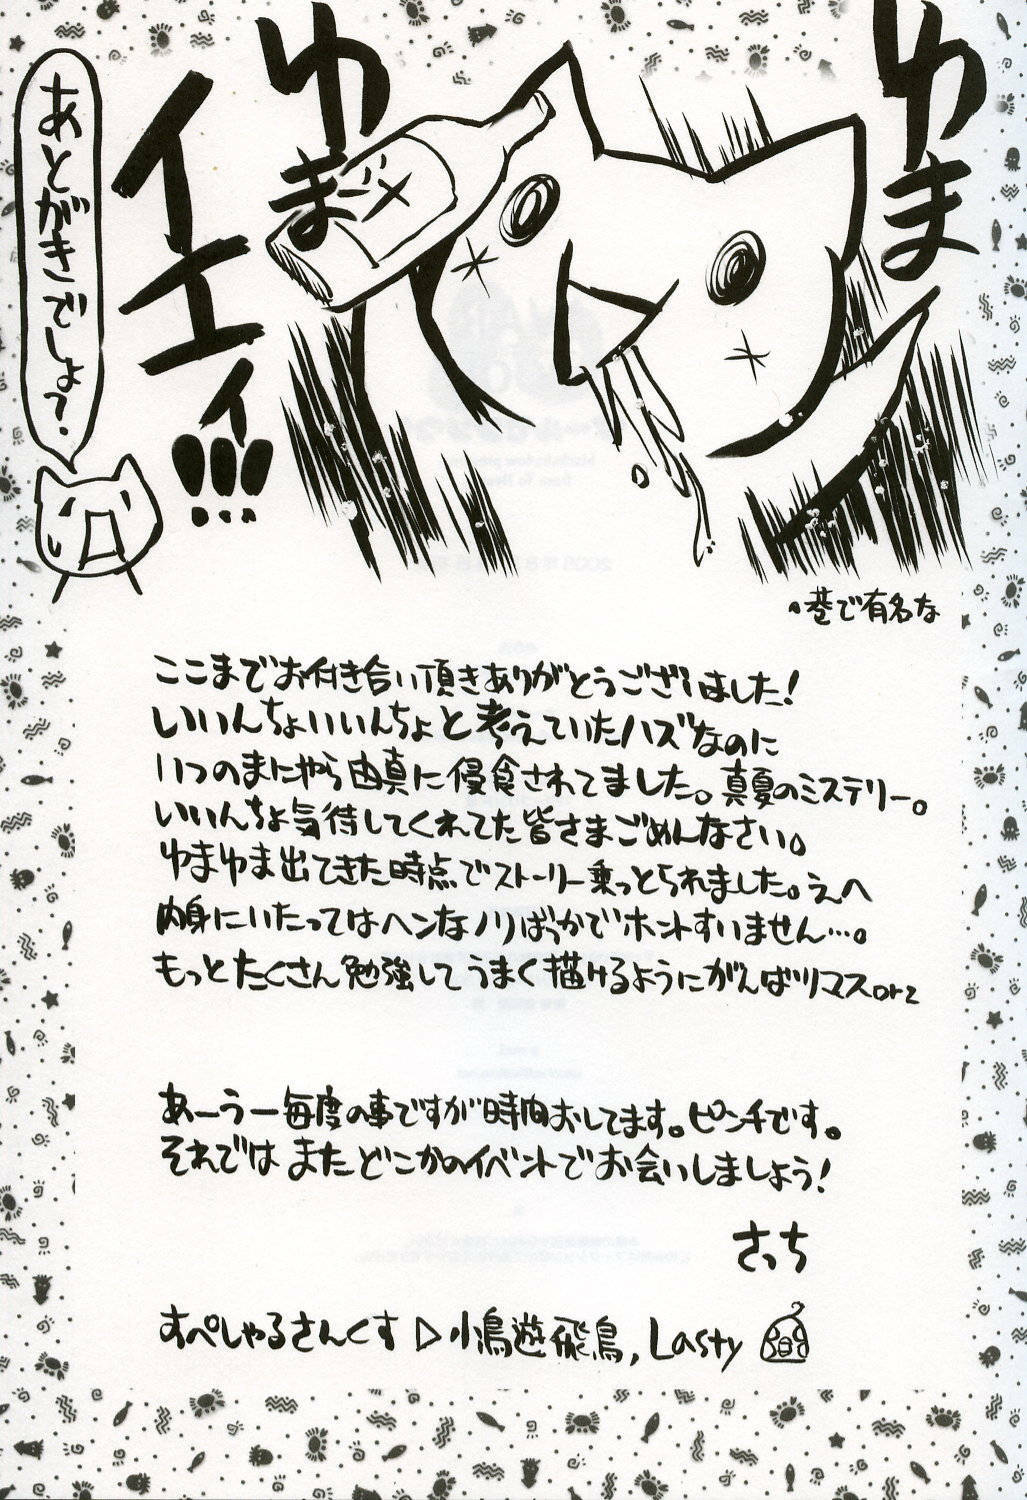 ゆま
ゆま
イエィ!!!
あとがきでしょ?
巷で有名な
ここまでお付き合い頂きありがとうございました!
いいんちょいいんちょと考えていたハズなのに
いつのまにやら由真に侵食されてました。真夏のミステリー。
いいんちょ気待してくれてた皆さまごめんなさい。
ゆまゆま出てきた時点でストーリー乗っとられました。えへ
内身にいたってはヘンなノリばっかでホントすいません…。
もっとたくさん勉強してうまく描けるようにがんばりマスorz
あーうー毎度の事ですが時間おしてます。ピンチです。
それではまたどこかのイベントでお会いしましょう!
さっち
すぺしゃるさんくす▷小鳥遊飛鳥, Lasty